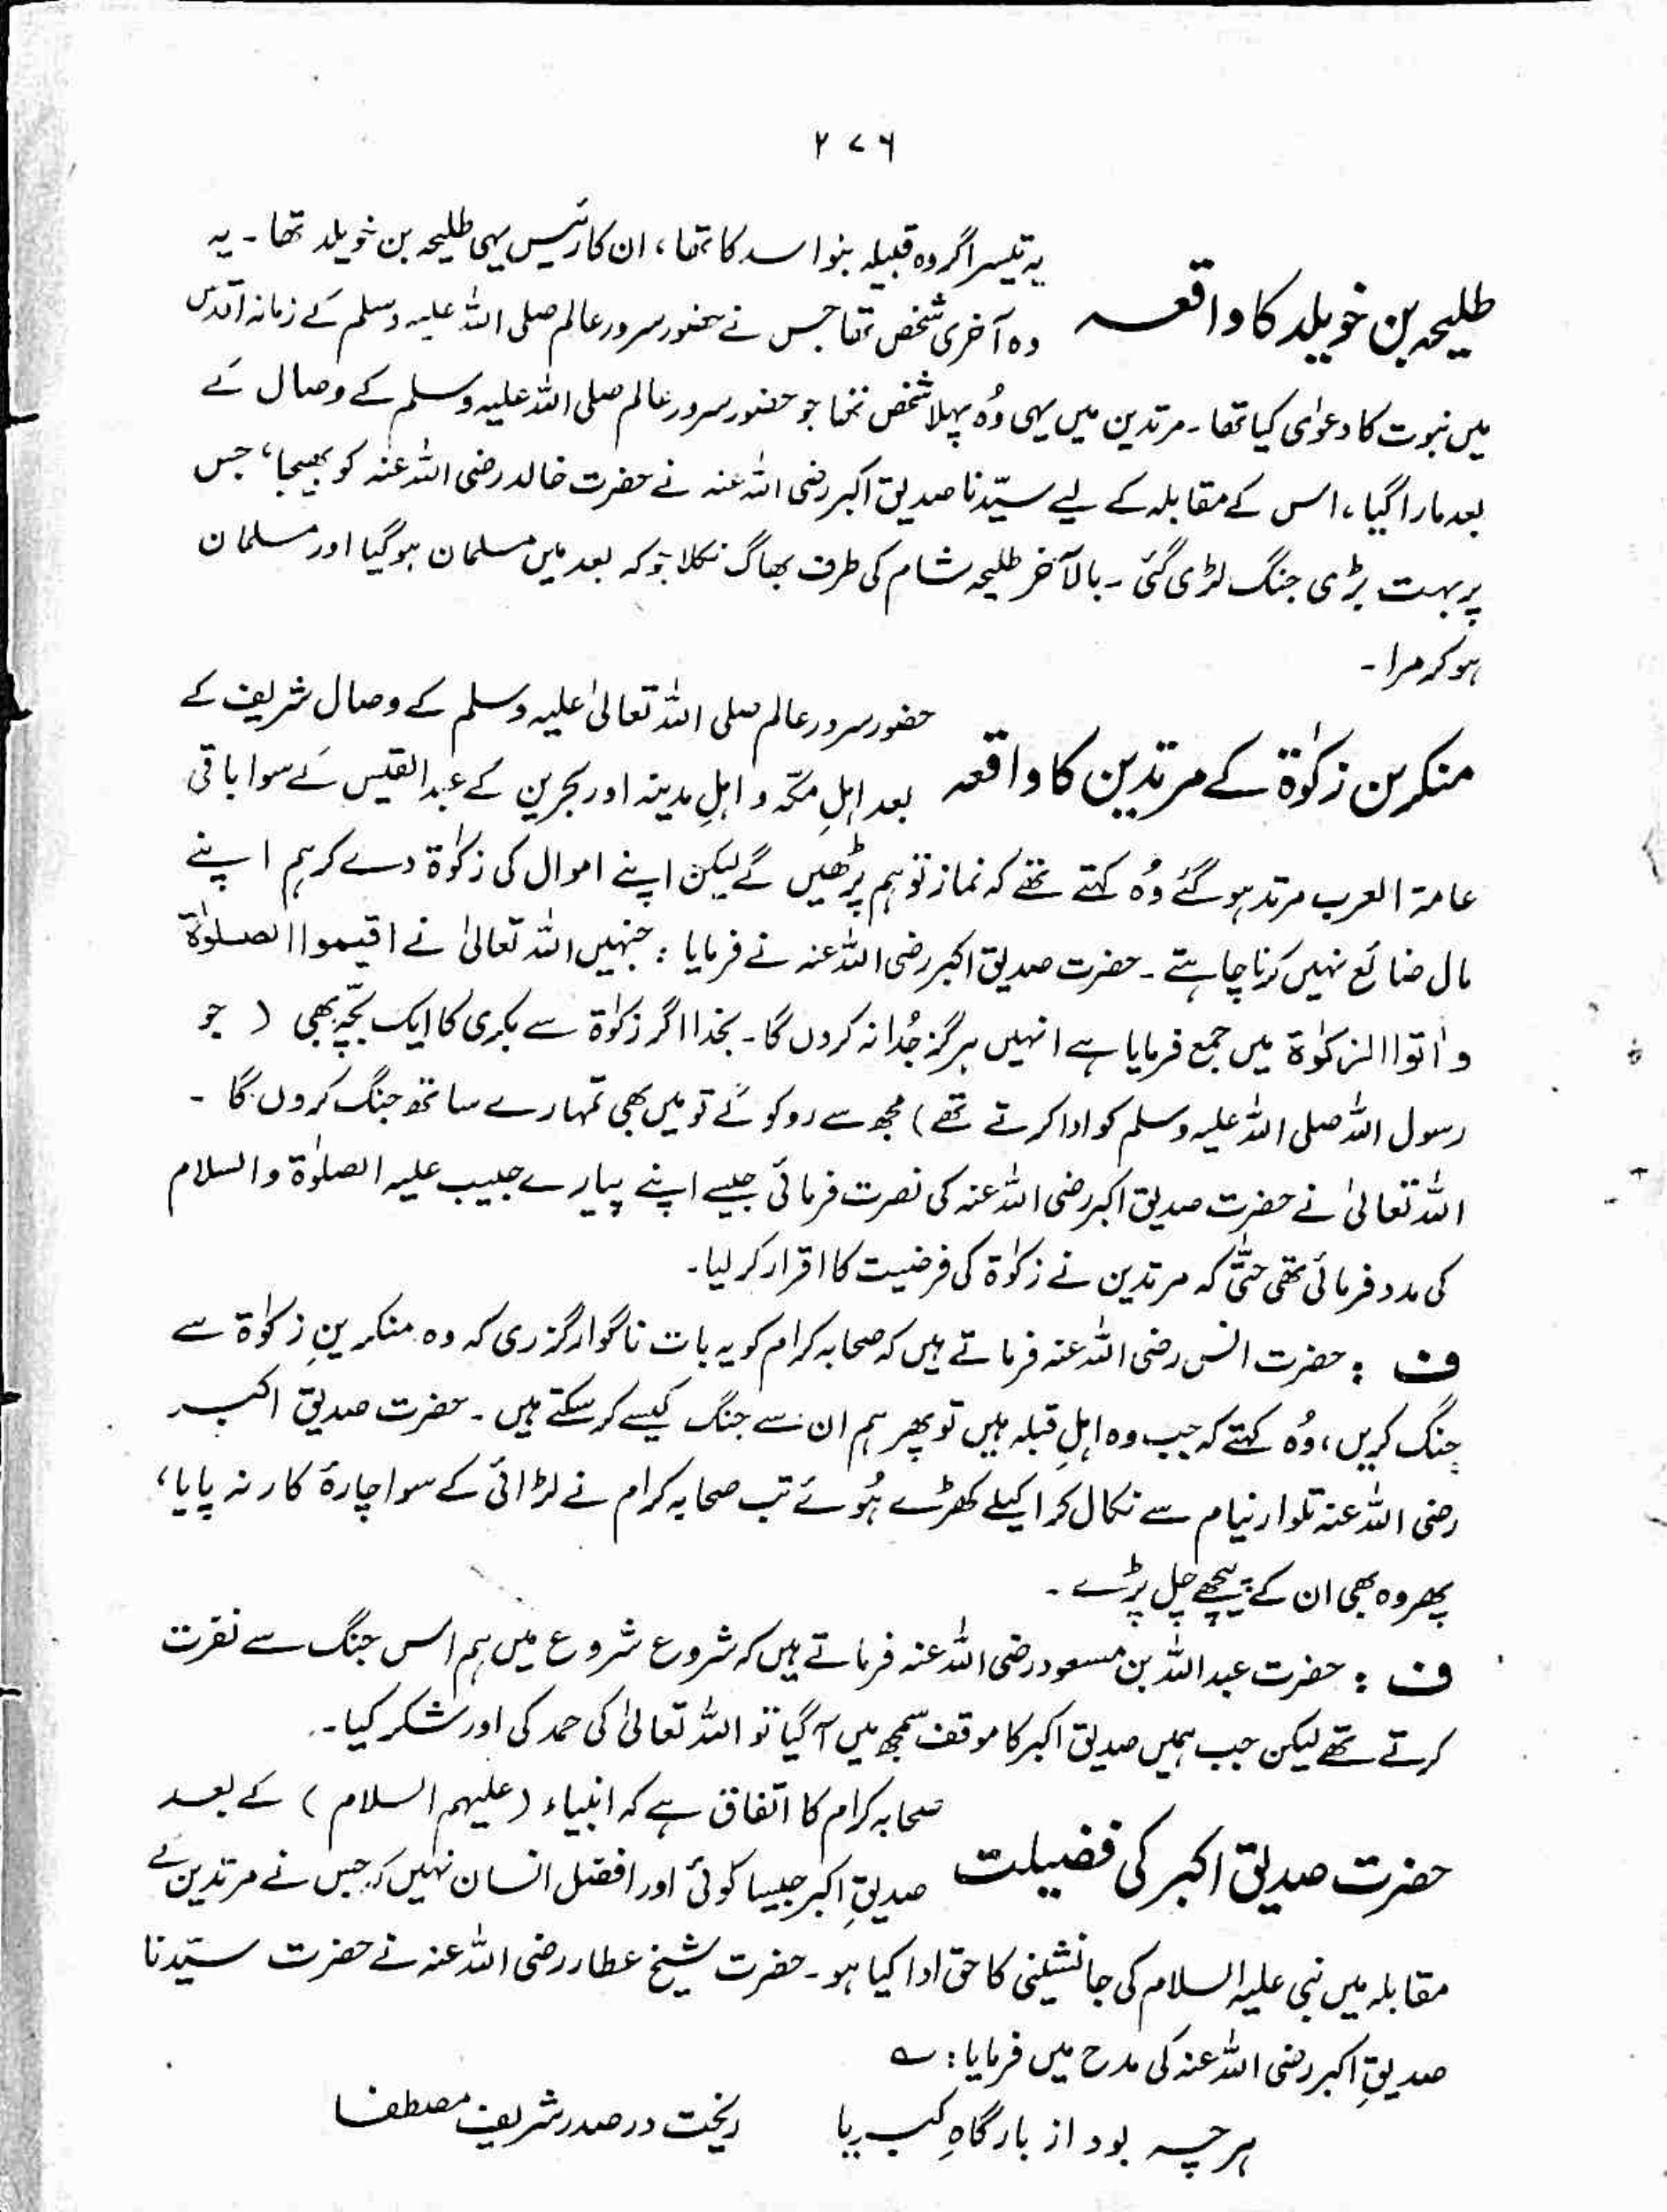 ۲۷۶
یہ تیسرا گروہ قبیلہ بنو اسد کا تھا، ان کا رئیس یہی طلیحہ بن خویلد تھا۔ یہ
طلیحہ بن خویلد کا واقعہ
وہ آخری شخص تھا جس نے حضور سرور عالم صلی اللہ علیہ وسلم کے زمانہ اقدس
میں نبوت کا دعوٰی کیا تھا۔ مرتدین میں یہی وُہ پہلا شخص تھا جو حضور سرور عالم صلی اللہ علیہ وسلم کے وصال کے
بعد مارا گیا، اس کے مقابلہ کے لیے سیّدنا صدیق اکبر رضی اللہ عنہ نے حضرت خالد رضی اللہ عنہ کو بھیجا، جس
پر بہت بڑی جنگ لڑی گئی۔ بالآخر طلیحہ شام کی طرف بھاگ نکلا جو کہ بعد میں مسلمان ہوگیا اور مسلمان
ہو کر مرا۔
حضور سرور عالم صلی اللہ تعالیٰ علیہ وسلم کے وصال شریف کے
منکرین زکوٰۃ کے مرتدین کا واقعہ
بعد اہلِ مکّہ و اہلِ مدینہ اور بحرین کے عبد القیس کے سوا باقی
عامۃ العرب مرتد ہوگئے وُہ کہتے تھے کہ نماز تو ہم پڑھیں گے لیکن اپنے اموال کی زکوٰۃ دے کر ہم اپنے
مال ضائع نہیں کرنا چاہتے۔ حضرت صدیق اکبر رضی اللہ عنہ نے فرمایا : جنہیں اللہ تعالیٰ نے اقیموا الصلوٰۃ
و اٰتوا الزکوٰۃ میں جمع فرمایا ہے انہیں ہرگز جُدا نہ کروں گا۔ بخدا اگر زکوٰۃ سے بکری کا ایک بچّہ بھی ( جو
رسول اللہ صلی اللہ علیہ وسلم کو ادا کرتے تھے ) مجھ سے روکو گے تو میں بھی تمہارے ساتھ جنگ کروں گا ۔
اللہ تعالیٰ نے حضرت صدیق اکبر رضی اللہ عنہ کی نصرت فرمائی جیسے اپنے پیارے حبیب علیہ الصلوٰۃ والسلام
کی مدد فرمائی تھی حتّٰی کہ مرتدین نے زکوٰۃ کی فرضیت کا اقرار کر لیا۔
ف : حضرت انس رضی اللہ عنہ فرماتے ہیں کہ صحابہ کرام کو یہ بات ناگوار گزری کہ وہ منکرینِ زکوٰۃ سے
جنگ کریں، وُہ کہتے کہ جب وہ اہلِ قبلہ ہیں تو پھر ہم ان سے جنگ کیسے کر سکتے ہیں۔ حضرت صدیق اکبر
رضی اللہ عنہ تلوار نیام سے نکال کر اکیلے کھڑے ہُوئے تب صحابہ کرام نے لڑائی کے سوا چارۂ کار نہ پایا،
پھر وہ بھی ان کے پیچھے چل پڑے۔
ف : حضرت عبداللہ بن مسعود رضی اللہ عنہ فرماتے ہیں کہ شروع شروع میں ہم اس جنگ سے نفرت
کرتے تھے لیکن جب ہمیں صدیق اکبر کا موقف سمجھ میں آگیا تو اللہ تعالیٰ کی حمد کی اور شکر کیا۔
صحابہ کرام کا اتفاق ہے کہ انبیاء (علیہم السلام ) کے بعد
حضرت صدیق اکبر کی فضیلت
صدیقِ اکبر جیسا کوئی اور افضل انسان نہیں کہ جس نے مرتدین کے
مقابلہ میں نبی علیہ السلام کی جانشینی کا حق ادا کیا ہو۔ حضرت شیخ عطار رضی اللہ عنہ نے حضرت سیّدنا
صدیقِ اکبر رضی اللہ عنہ کی مدح میں فرمایا : ؎
ہرچہ بود از بارگاہِ کبریا ریخت در صدر شریف مصطفا